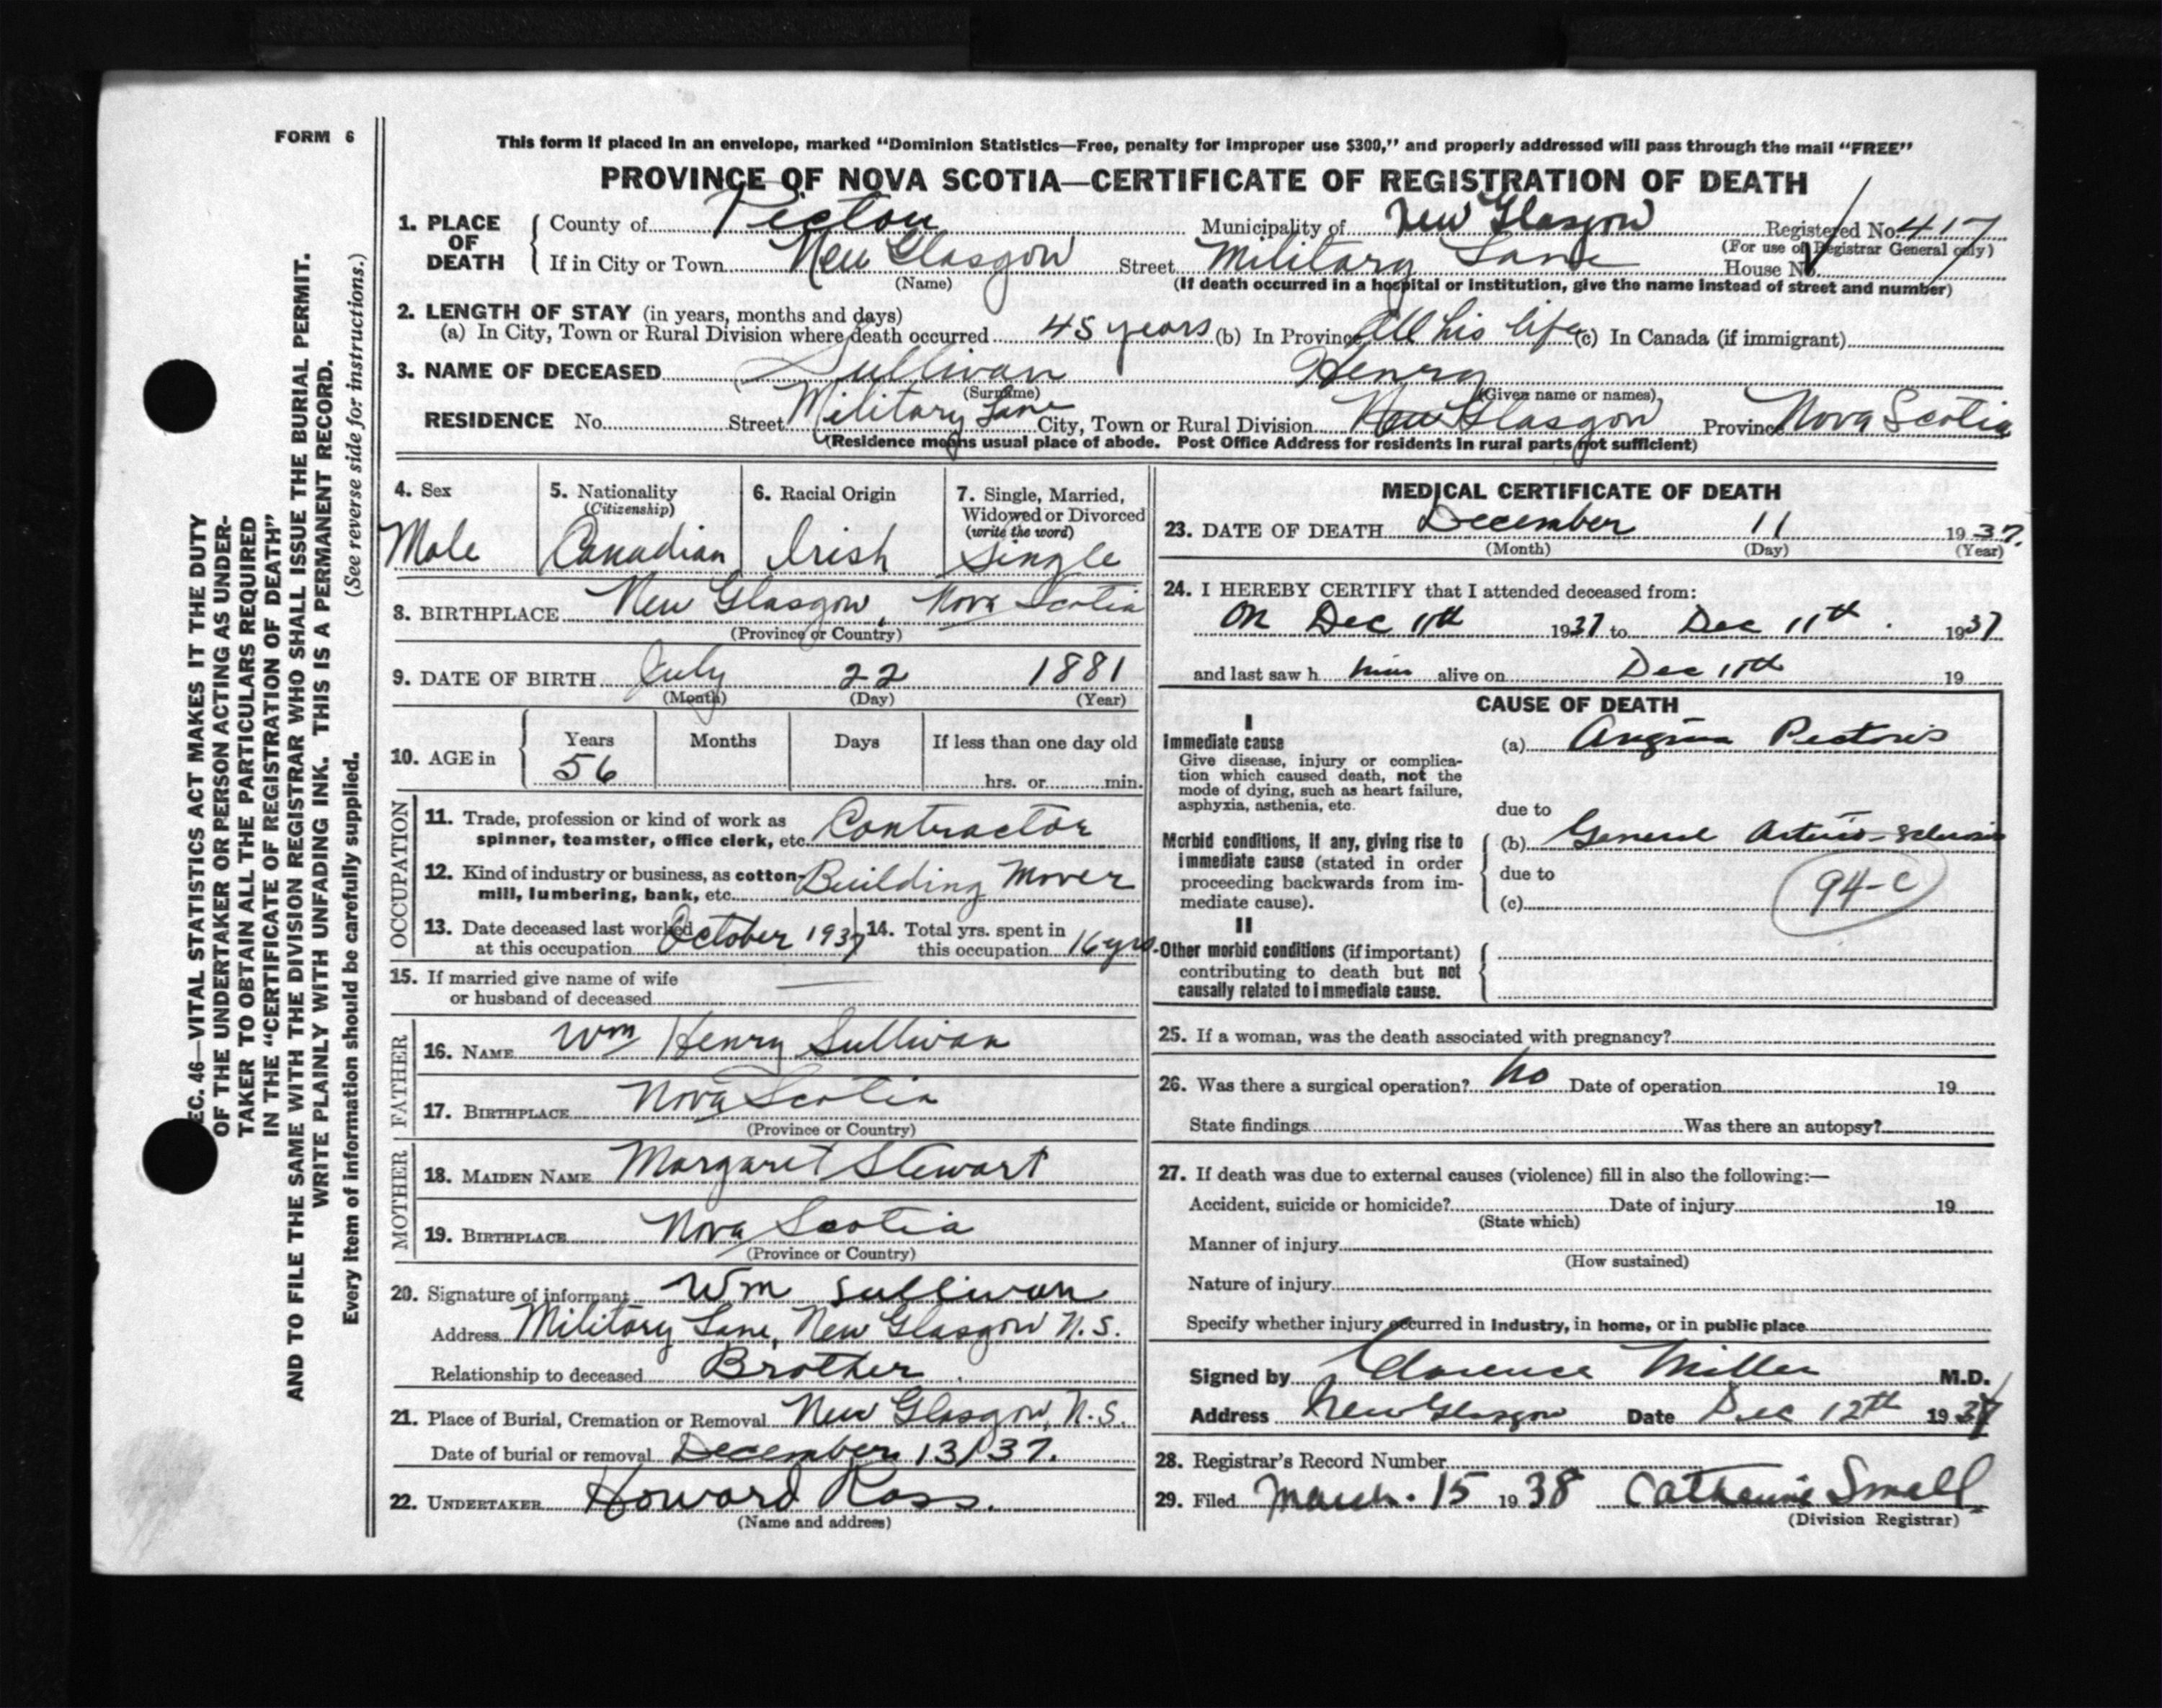 FORM 6
This form if placed in an envelope, marked "Dominion Statistics—Free, penalty for improper use $300," and properly addressed will pass through the mail "FREE"
PROVINCE OF NOVA SCOTIA—CERTIFICATE OF REGISTRATION OF DEATH
1. PLACE OF DEATH { County of Pictou Municipality of New Glasgow Registered No. 417
(For use of Registrar General only)
If in City or Town New Glasgow Street Military Lane House No.
(Name) (If death occurred in a hospital or institution, give the name instead of street and number)
2. LENGTH OF STAY (in years, months and days)
(a) In City, Town or Rural Division where death occurred 45 years (b) In Province All his life (c) In Canada (if immigrant)
3. NAME OF DECEASED Sullivan Henry
(Surname) (Given name or names)
RESIDENCE No. Street Military Lane City, Town or Rural Division New Glasgow Province Nova Scotia
(Residence means usual place of abode. Post Office Address for residents in rural parts not sufficient)
4. Sex
Male
5. Nationality
(Citizenship)
Canadian
6. Racial Origin
Irish
7. Single, Married,
Widowed or Divorced
(write the word)
Single
8. BIRTHPLACE New Glasgow, Nova Scotia
(Province or Country)
9. DATE OF BIRTH July 22 1881
(Month) (Day) (Year)
10. AGE in { Years Months Days If less than one day old
56 hrs. or min.
OCCUPATION
11. Trade, profession or kind of work as
spinner, teamster, office clerk, etc. Contractor
12. Kind of industry or business, as cotton-
mill, lumbering, bank, etc. Building Mover
13. Date deceased last worked
at this occupation October 1937
14. Total yrs. spent in
this occupation 16 yrs.
15. If married give name of wife
or husband of deceased —
FATHER
16. NAME Wm Henry Sullivan
17. BIRTHPLACE Nova Scotia
(Province or Country)
MOTHER
18. MAIDEN NAME Margaret Stewart
19. BIRTHPLACE Nova Scotia
(Province or Country)
20. Signature of informant Wm Sullivan
Address Military Lane, New Glasgow N.S.
Relationship to deceased Brother.
21. Place of Burial, Cremation or Removal New Glasgow, N.S.
Date of burial or removal December 13/37.
22. UNDERTAKER Howard Ross.
(Name and address)
MEDICAL CERTIFICATE OF DEATH
23. DATE OF DEATH December 11 1937.
(Month) (Day) (Year)
24. I HEREBY CERTIFY that I attended deceased from:
On Dec 11th 1937 to Dec 11th. 1937
and last saw h him alive on Dec 11th 19
CAUSE OF DEATH
I
Immediate cause
Give disease, injury or complica-
tion which caused death, not the
mode of dying, such as heart failure,
asphyxia, asthenia, etc.
(a) Angina Pectoris
due to
Morbid conditions, if any, giving rise to
immediate cause (stated in order
proceeding backwards from im-
mediate cause).
(b) General Arterio-sclerosis
due to
(c)
94-c
II
Other morbid conditions (if important)
contributing to death but not
causally related to immediate cause.
25. If a woman, was the death associated with pregnancy?
26. Was there a surgical operation? No Date of operation 19
State findings Was there an autopsy?
27. If death was due to external causes (violence) fill in also the following:—
Accident, suicide or homicide? Date of injury 19
(State which)
Manner of injury
(How sustained)
Nature of injury
Specify whether injury occurred in industry, in home, or in public place
Signed by Clarence Miller M.D.
Address New Glasgow Date Dec 12th 1937
28. Registrar's Record Number
29. Filed March. 15 1938 Catherine Small
(Division Registrar)
EC. 46—VITAL STATISTICS ACT MAKES IT THE DUTY
OF THE UNDERTAKER OR PERSON ACTING AS UNDER-
TAKER TO OBTAIN ALL THE PARTICULARS REQUIRED
IN THE "CERTIFICATE OF REGISTRATION OF DEATH"
AND TO FILE THE SAME WITH THE DIVISION REGISTRAR WHO SHALL ISSUE THE BURIAL PERMIT.
WRITE PLAINLY WITH UNFADING INK. THIS IS A PERMANENT RECORD.
Every item of information should be carefully supplied. (See reverse side for instructions.)